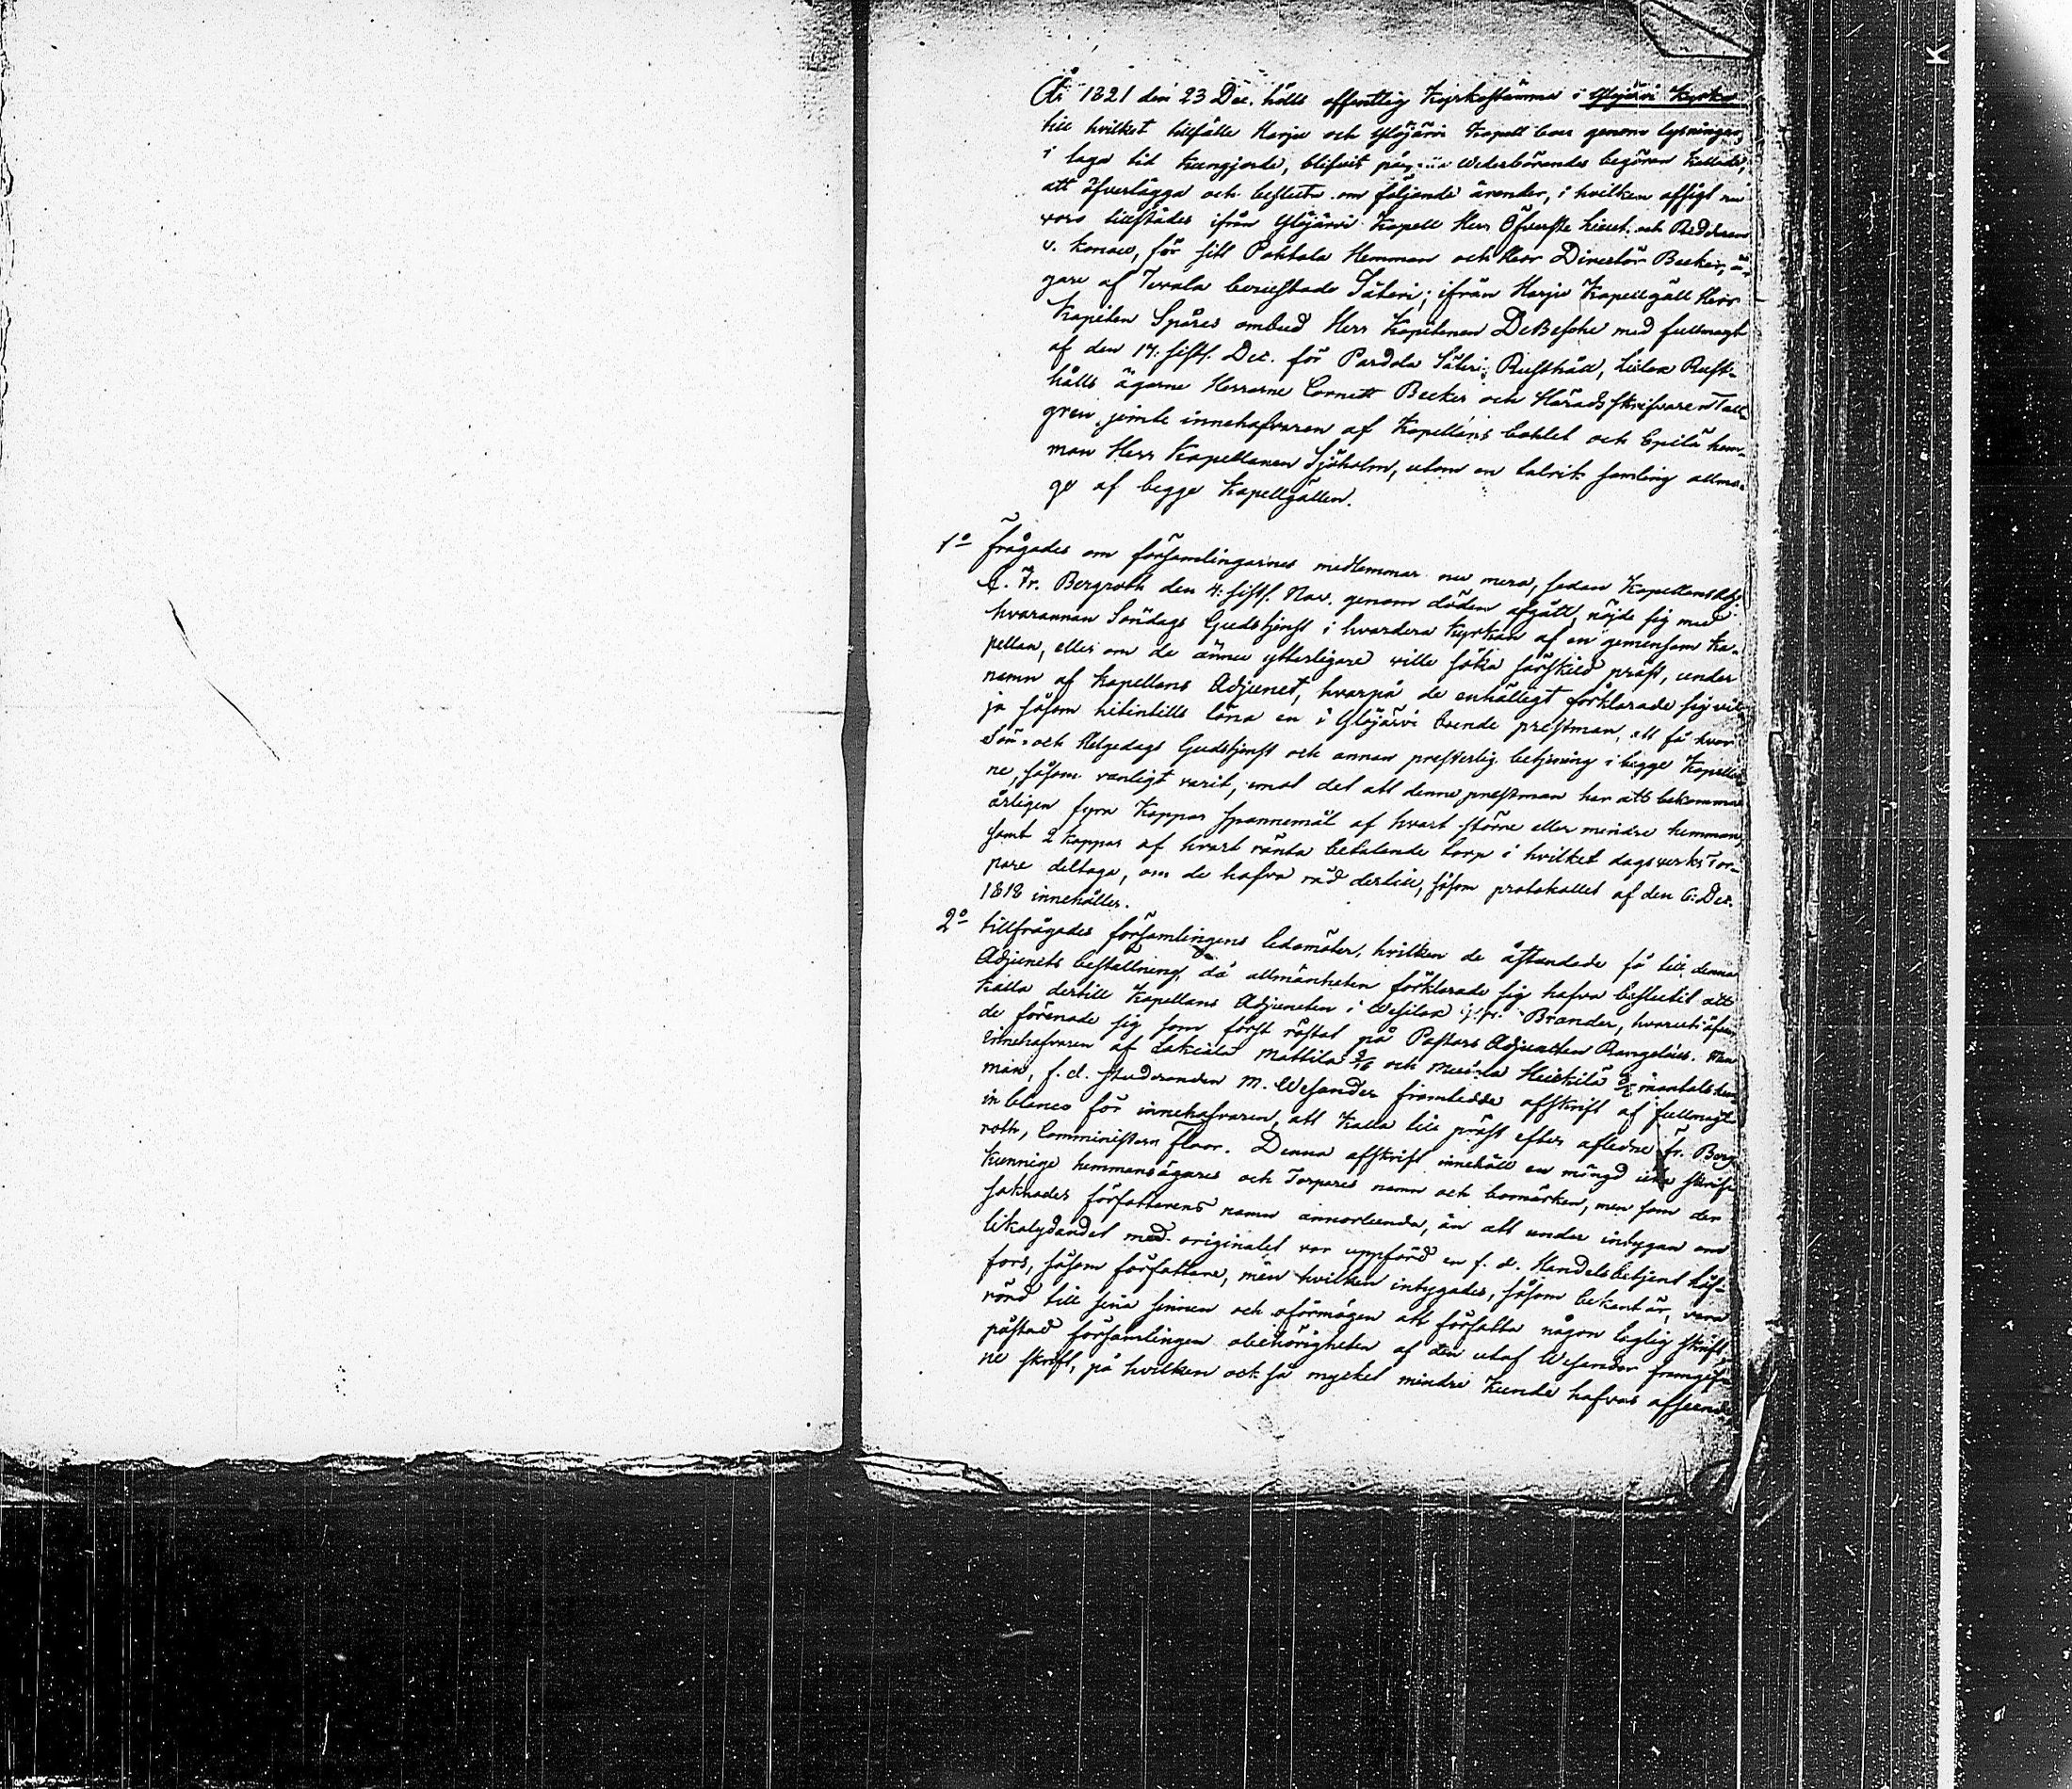 År 1821 den 23 Dec. hölls offentlig Kyrkostämma i Ylöjärvi Kyrka
till hvilket tillfälle Harju och Ylöjärvi Kapell boer genom lysningar,
i laga tid kungjorde, blifvit på wederbörandes begäran kallade,
att öfverlägga och besluta om följande ärender, i hvilken afsigt nu
voro tillstädes ifrån Ylöjärvi Kapell Herr Öfverste Lieut. och Riddaren
v. Konow, för sitt Pohtola Hemman och Herr Directör Becker, ä-
gare af Terala berustade Säteri; ifrån Harju Kapellgäll Herr
Kapiten Spåres ombud Herr Kapitenen DeBesche med fullmagt
af den 17. sistl. Dec. för Pardola Säteri Rusthåll, Rust-
hålls ägarne Herrarne Cornett Becker och Häradsskrifvaren Tall-
gren, jemte innehafvaren af Kapellans bohlet och Epilä hem-
man Herr Kapellanen Sjöholm, utom en talrik samling allmo-
ge af begge Kapellgällen.
1o Frågades om församlingarnes medlemmar nu mera, sedan Kapellans Adj.
C. Fr. Bergroth den 4. sistl. Nov. genom döden afgått, nöjde sig med
hvarannan Söndags Gudstjenst i hvardera Kyrkan af en gemensam Ka-
pellan, eller om de ännu ytterligare ville söka särskild präst, under
namn af Kapellans Adjunct, hvarpå de enhälligt förklarade sig vil-
ja såsom hitintills löna en i Ylöjärvi boende prestman, att få hvar
Sön- och Helgedags Gudstjenst och annan presterlig betjening i begge Kapeller-
ne, såsom vanligt varit, emot det att denne prestman har att bekomma
årligen fyra Kappar Spannemål af hvart större eller mindre hemman,
samt 2 kappar af hvart ränta betalande torp i hvilket dagsverks Tor-
pare deltaga, om de hafva råd dertill, såsom protokollet af den 6. Dec.
1818 innehåller.
2o tillfrågades församlingens ledamöter, hvilken de åstundade få till denna
Adjuncts beställning, då allmänheten förklarade sig hafva beslutit att
kalla dertill Kapellans Adjuncten i Wesilax Brander, hvaruti äfven
de förenade sig som först röstat på Pastors Adjuncten Rangelius. Men
innehafvaren af Lakiala Mattila 3/16 och Heickilä mantals hem-
man, f. d. studeranden M. Wesander framtedde afskrift af fullmagt
in blanco för innehafvaren, att kalla till präst efter aflidne Fr. Berg-
roth, Comministern Floor. Denna afskrift innehöll en mängd icke skrif-
kunnige hemmansägares och Torpares namn och bomärken, men som der
saknades författarens namn annorlunda, än att under intygan om
likalydandet med originalet var uppförd en f. d. Handelsbetjent Höf-
fors, såsom författare, men hvilken intygades, såsom bekant är, vara
rörd till sina sinnen och oförmögen att författa någon laglig skrift,
påstod församlingen obehörigheten af den utaf Wesander framgif-
ne skrift, på hvilken ock så mycket mindre kunde hafvas afseende